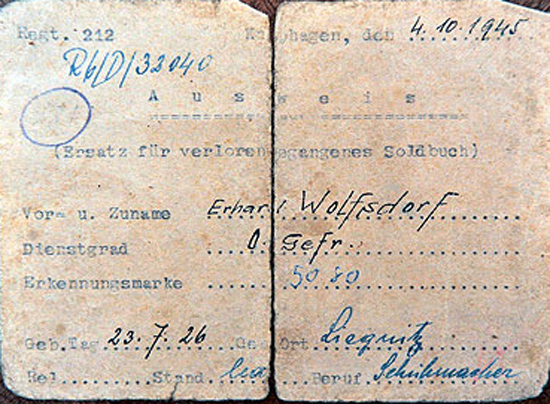 Regt. 212 hagen, den 4.10.1945
Rb/D/32040
Ausweis
(Ersatz für verlorengegangenes Soldbuch)
Vor- u. Zuname Erhard Wolfsdorf
Dienstgrad O. Gefr.
Erkennungsmarke 5080
Geb.Tag 23.7.26 Geb.Ort Liegnitz
Rel. Stand Beruf Schuhmacher